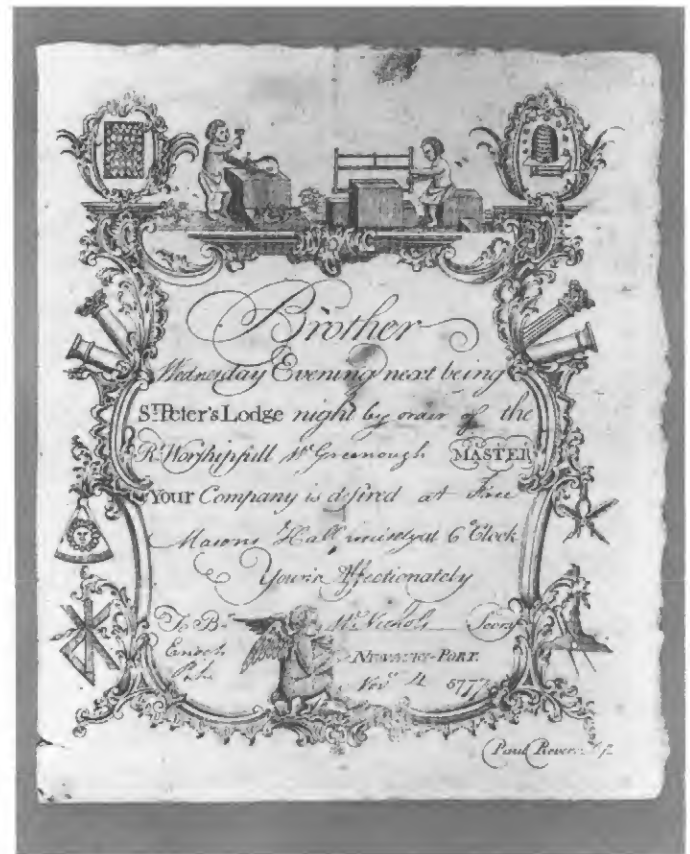 Brother
Wednesday Evening next being
St. Peter's Lodge night by order of the
Rt. Worshipfull Wm Greenough MASTER
Your Company is desired at Free
Masons Hall precisely at 6 o'Clock
Your's Affectionately
To Br. Wm. Nichols Secry
Enoch NEWBURY-PORT
Novr 4 5772
Paul Revere